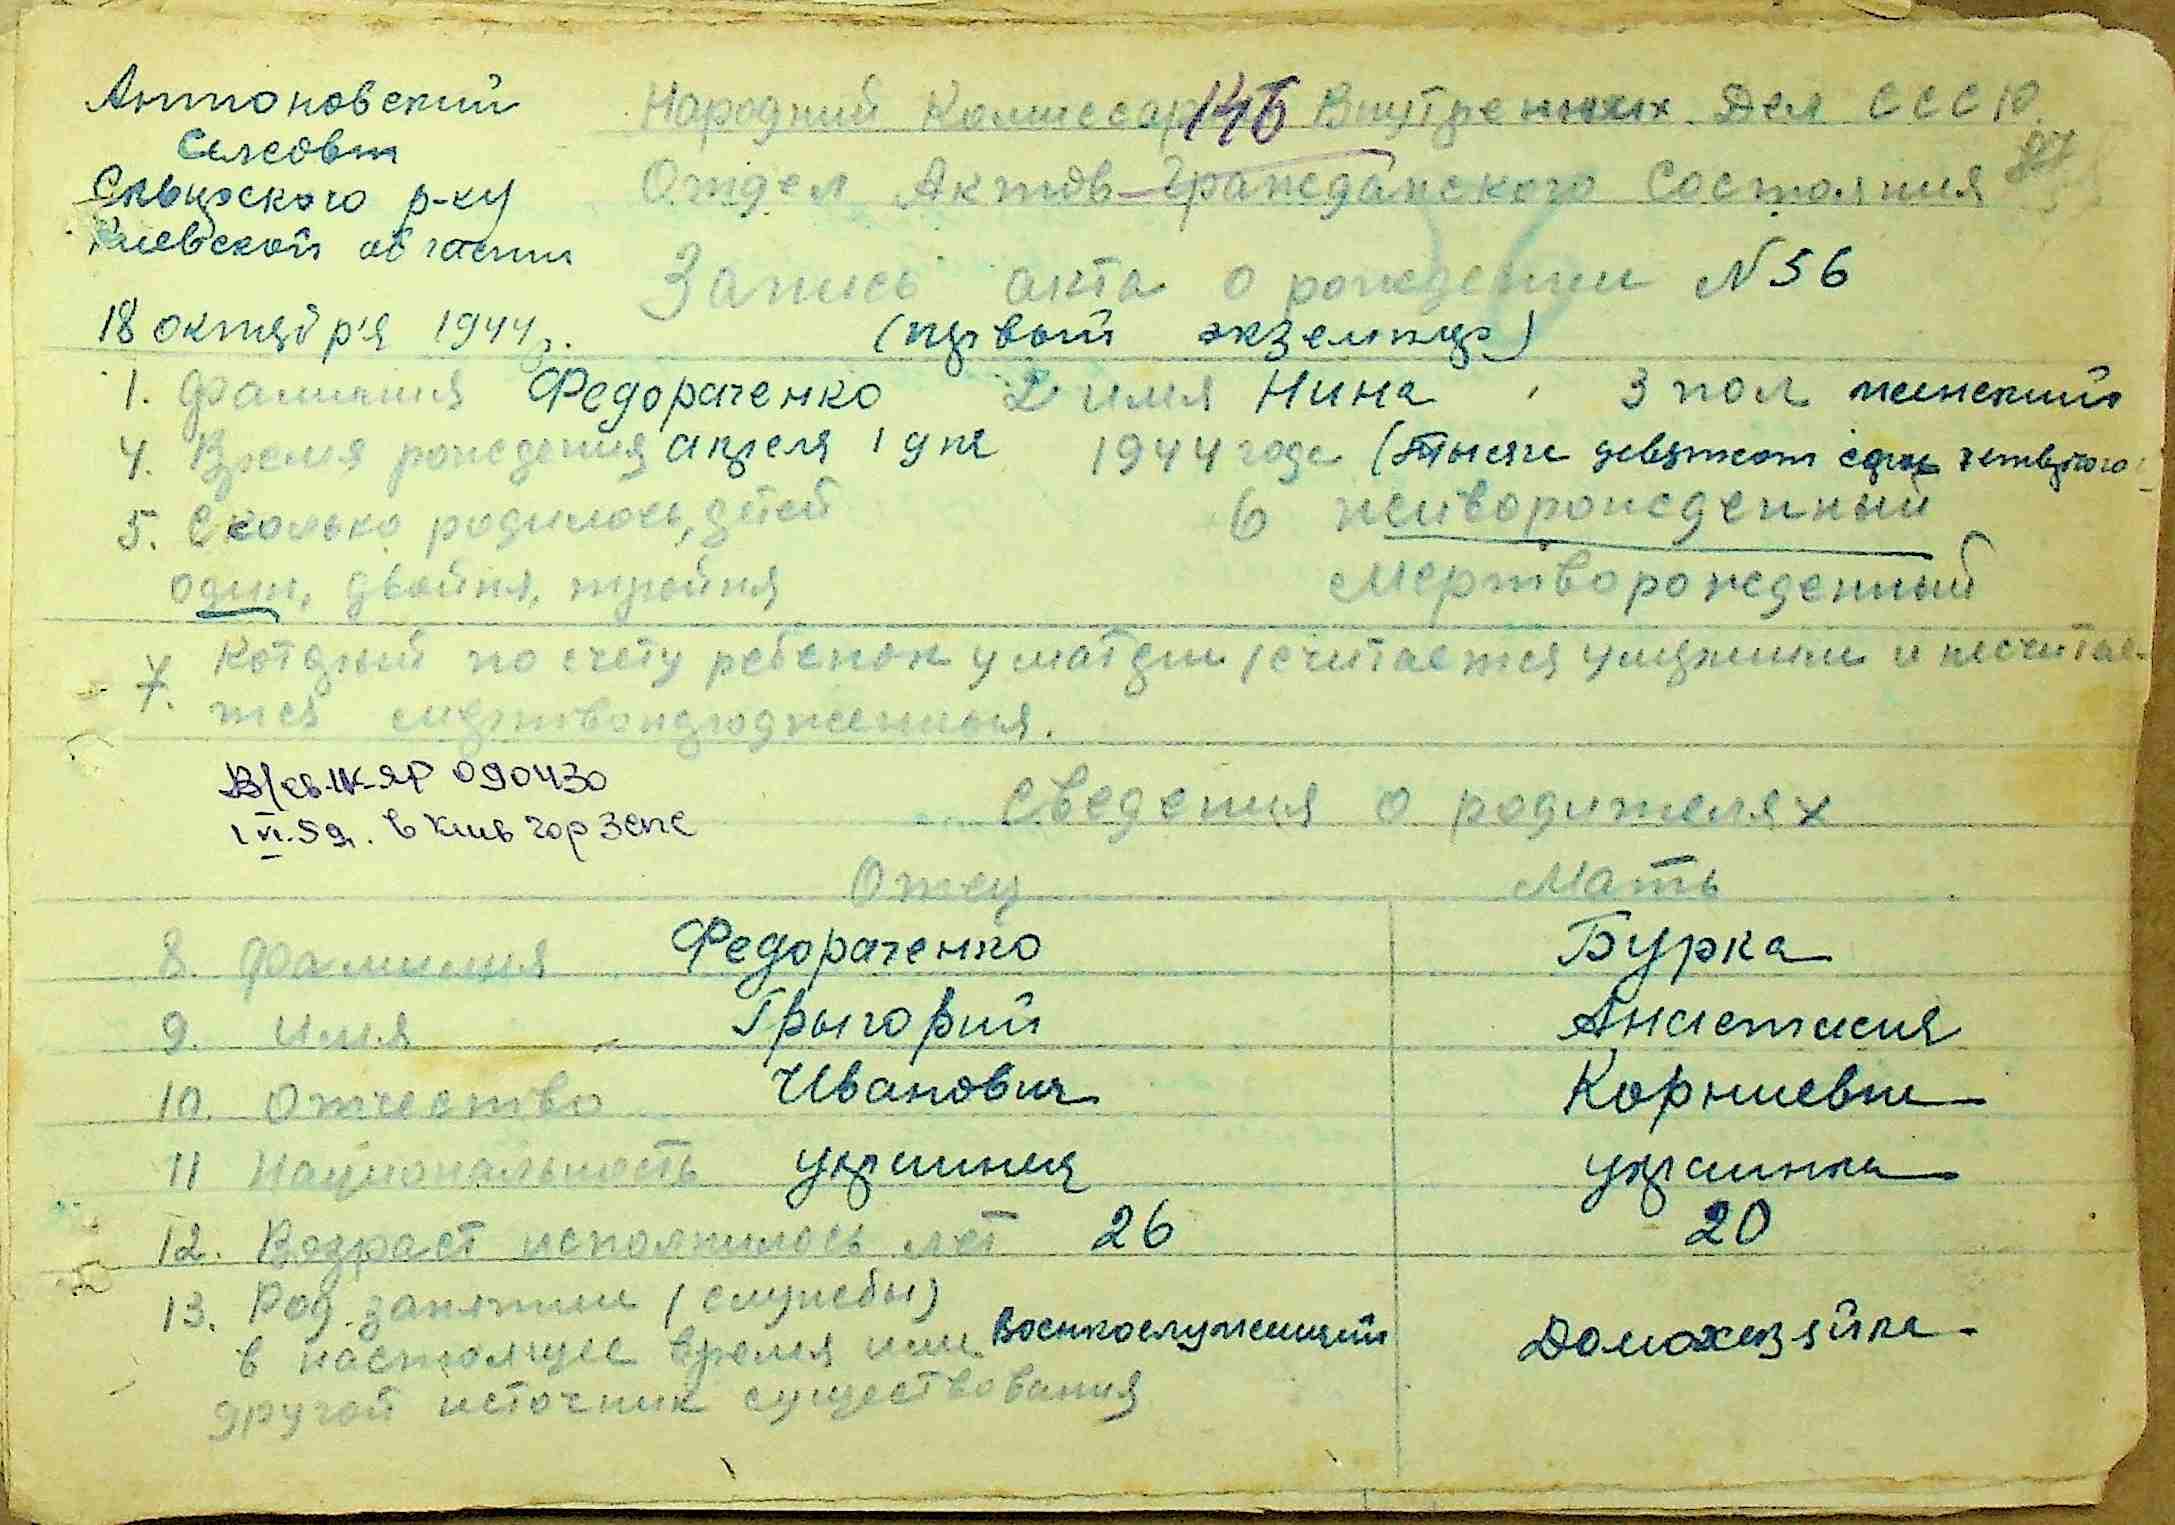 Антоновский
Сельсовет
р-ку
Киевской области
18 октября 1944 г.
Народний Комиссар 146 Внутренних Дел СССР
87
Отдел Актов Гражданского Состояния
Запись акта о рождении N 56
(первый экземпляр)
1. Фамилия Федораченко 2 имя Нина, 3 пол женский
4. Время рождения апреля 1 дня 1944 года (тысяч девятсот сорок четвертого
5. Сколько родилось детей 6 живорожденный
один, двойня, тройня мертворожденный
7. Который по счету ребенок у матери (считается умершии и несчитае-
тся
090430
1 VI.59г. в Киев горзагс
Сведения о родителях
Отец Мать
8. Фамилия Федораченко Бурка
9. Имя Грыгорий Анастасия
10. Отчество Иванович Корниевна
11 Национальность украинец украинка
12. Возраст исполнилось лет 26 20
13. Род занятии (службы)
в настоящее время или Военнослужащий Домохазяйка
другой источник существования